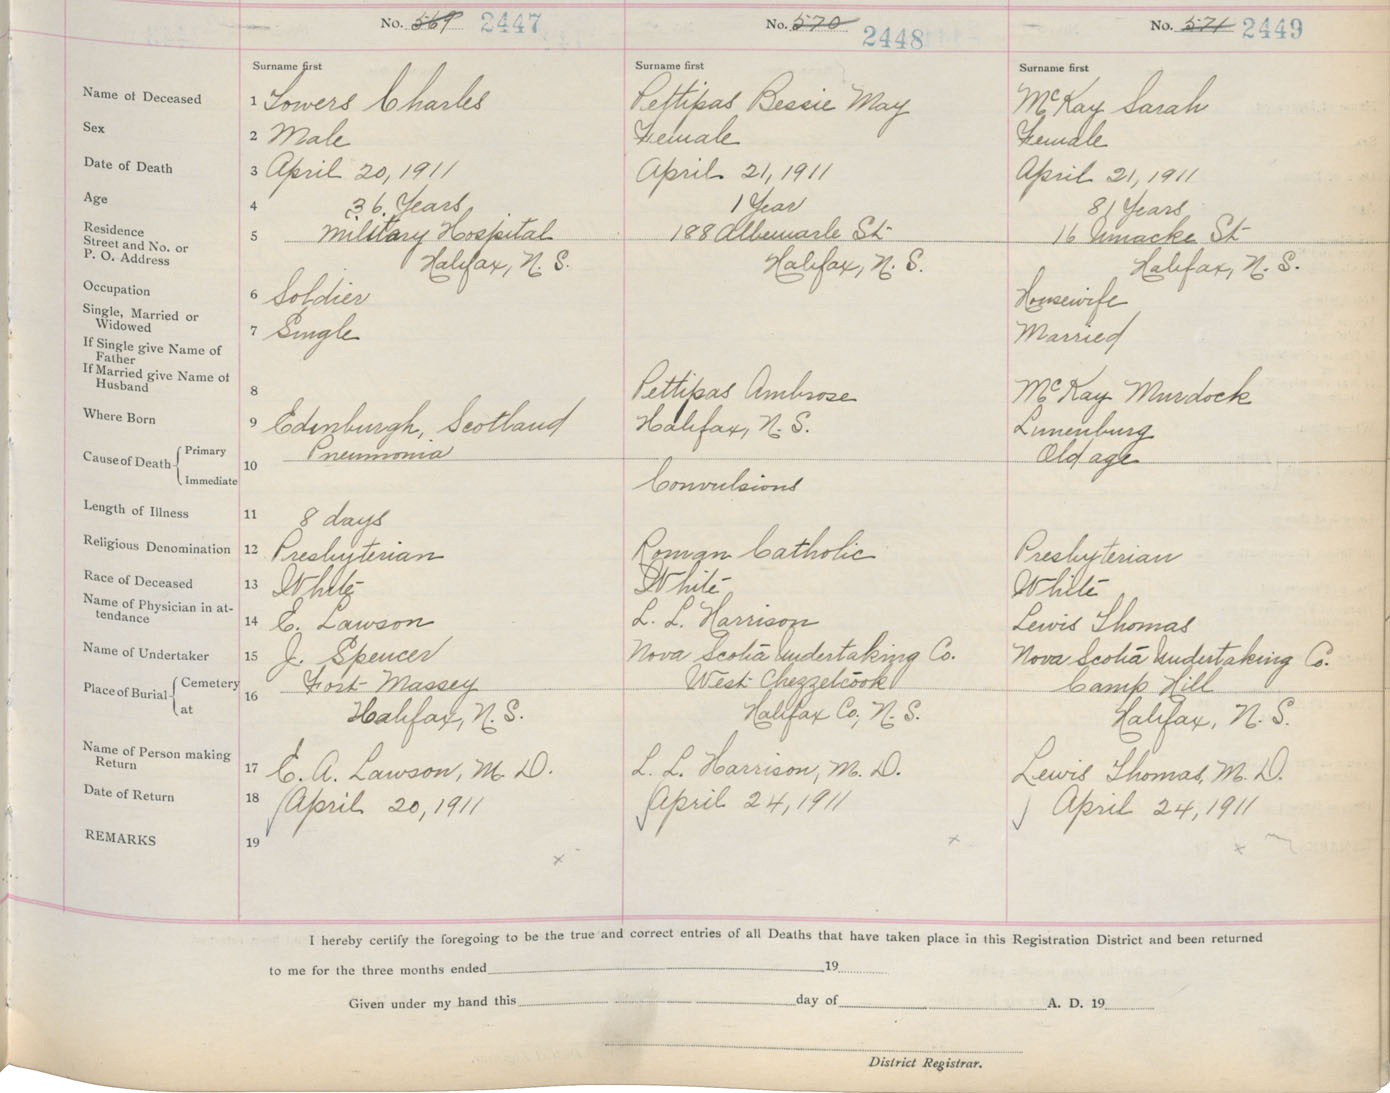 No. 569 2447
No. 570 2448
No. 571 2449
Surname first
Surname first
Surname first
Name of Deceased 1 Towers Charles
Pettipas Bessie May
McKay Sarah
Sex 2 Male
Female
Female
Date of Death 3 April 20, 1911
April 21, 1911
April 21, 1911
Age 4 36 Years
1 Year
81 Years
Residence
Street and No. or
P. O. Address
5 Military Hospital
Halifax, N. S.
188 Albemarle St
Halifax, N. S.
16 Uniacke St
Halifax, N. S.
Occupation 6 Soldier
Housewife
Single, Married or
Widowed
7 Single
Married
If Single give Name of
Father
If Married give Name of
Husband
8
Pettipas Ambrose
McKay Murdock
Where Born 9 Edinburgh, Scotland
Halifax, N. S.
Lunenburg
Cause of Death Primary
Immediate
10 Pneumonia
Convulsions
Old age
Length of Illness 11 8 days
Religious Denomination 12 Presbyterian
Roman Catholic
Presbyterian
Race of Deceased 13 White
White
White
Name of Physician in at-
tendance
14 E. Lawson
L. L. Harrison
Lewis Thomas
Name of Undertaker 15 J. Spencer
Nova Scotia Undertaking Co.
Nova Scotia Undertaking Co.
Place of Burial Cemetery
at
16 Fort Massey
Halifax, N. S.
West Chezzetcook
Halifax Co, N. S.
Camp Hill
Halifax, N. S.
Name of Person making
Return
17 E. A. Lawson, M. D.
L. L. Harrison, M. D.
Lewis Thomas, M. D.
Date of Return 18 April 20, 1911
April 24, 1911
April 24, 1911
REMARKS 19
I hereby certify the foregoing to be the true and correct entries of all Deaths that have taken place in this Registration District and been returned
to me for the three months ended 19
Given under my hand this day of A. D. 19
District Registrar.